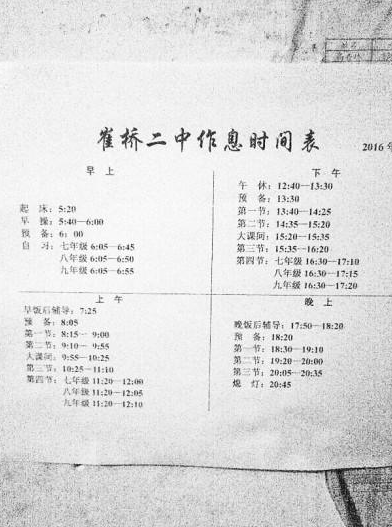 崔桥二中作息时间表
2016年
早 上
起 床：5:20
早 操：5:40—6:00
预 备：6：00
自 习：七年级 6:05—6:45
八年级 6:05—6:50
九年级 6:05—6:55
下 午
午 休：12:40—13:30
预 备：13:30
第一节：13:40—14:25
第二节：14:35—15:20
大课间：15:20—15:35
第三节：15:35—16:20
第四节：七年级 16:30—17:10
八年级 16:30—17:15
九年级 16:30—17:20
上 午
早饭后辅导：7:25
预 备：8:05
第一节：8:15— 9:00
第二节：9:10— 9:55
大课间：9:55—10:25
第三节：10:25—11:10
第四节：七年级 11:20—12:00
八年级 11:20—12:05
九年级 11:20—12:10
晚 上
晚饭后辅导：17:50—18:20
预 备：18:20
第一节：18:30—19:10
第二节：19:20—20:00
第三节：20:05—20:35
熄 灯：20:45